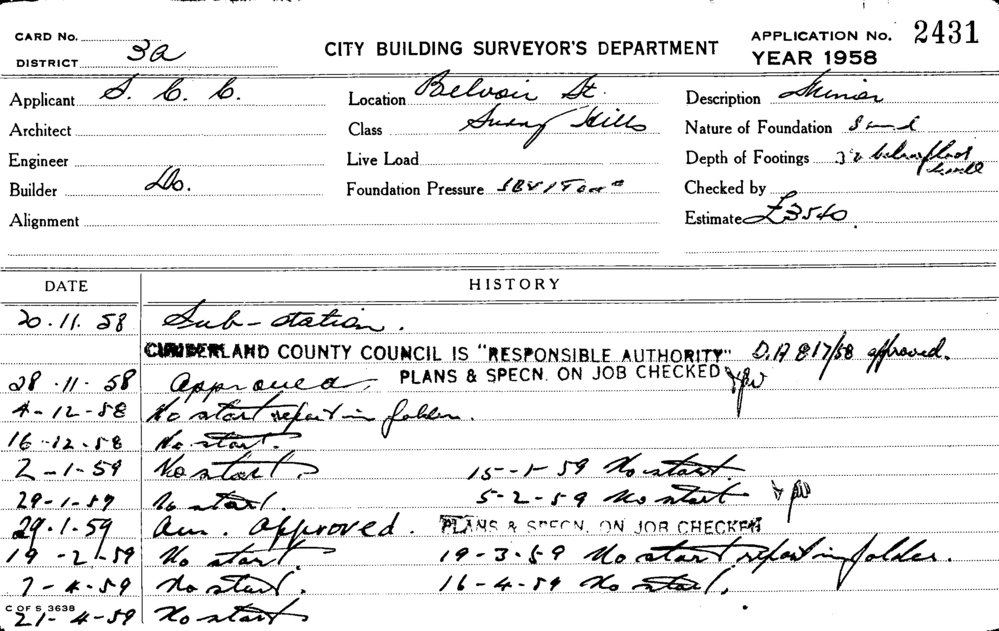 CARD No.
DISTRICT 3a
CITY BUILDING SURVEYOR'S DEPARTMENT
APPLICATION No. 2431
YEAR 1958
Applicant S. C. C.
Location Belvoir St.
Description Minor
Architect
Class Surry Hills
Nature of Foundation Sand
Engineer
Live Load
Depth of Footings below floor level
Builder Do.
Foundation Pressure
Checked by
Alignment
Estimate £3540.
DATE HISTORY
20.11.58 Sub-station.
CUMBERLAND COUNTY COUNCIL IS "RESPONSIBLE AUTHORITY" D.A 817/58 approved.
28.11.58 Approved, PLANS & SPECN. ON JOB CHECKED
4-12-58 No start report in folder.
16-12-58 No start.
2-1-59 No start. 15-1-59 No start.
29-1-59 No start. 5-2-59 No start
29.1.59 Am. Approved. PLANS & SPECN. ON JOB CHECKED
19-2-59 No start. 19-3-59 No start report in folder.
7-4-59 No start. 16-4-59 No start.
C OF S 3638
21-4-59 No start